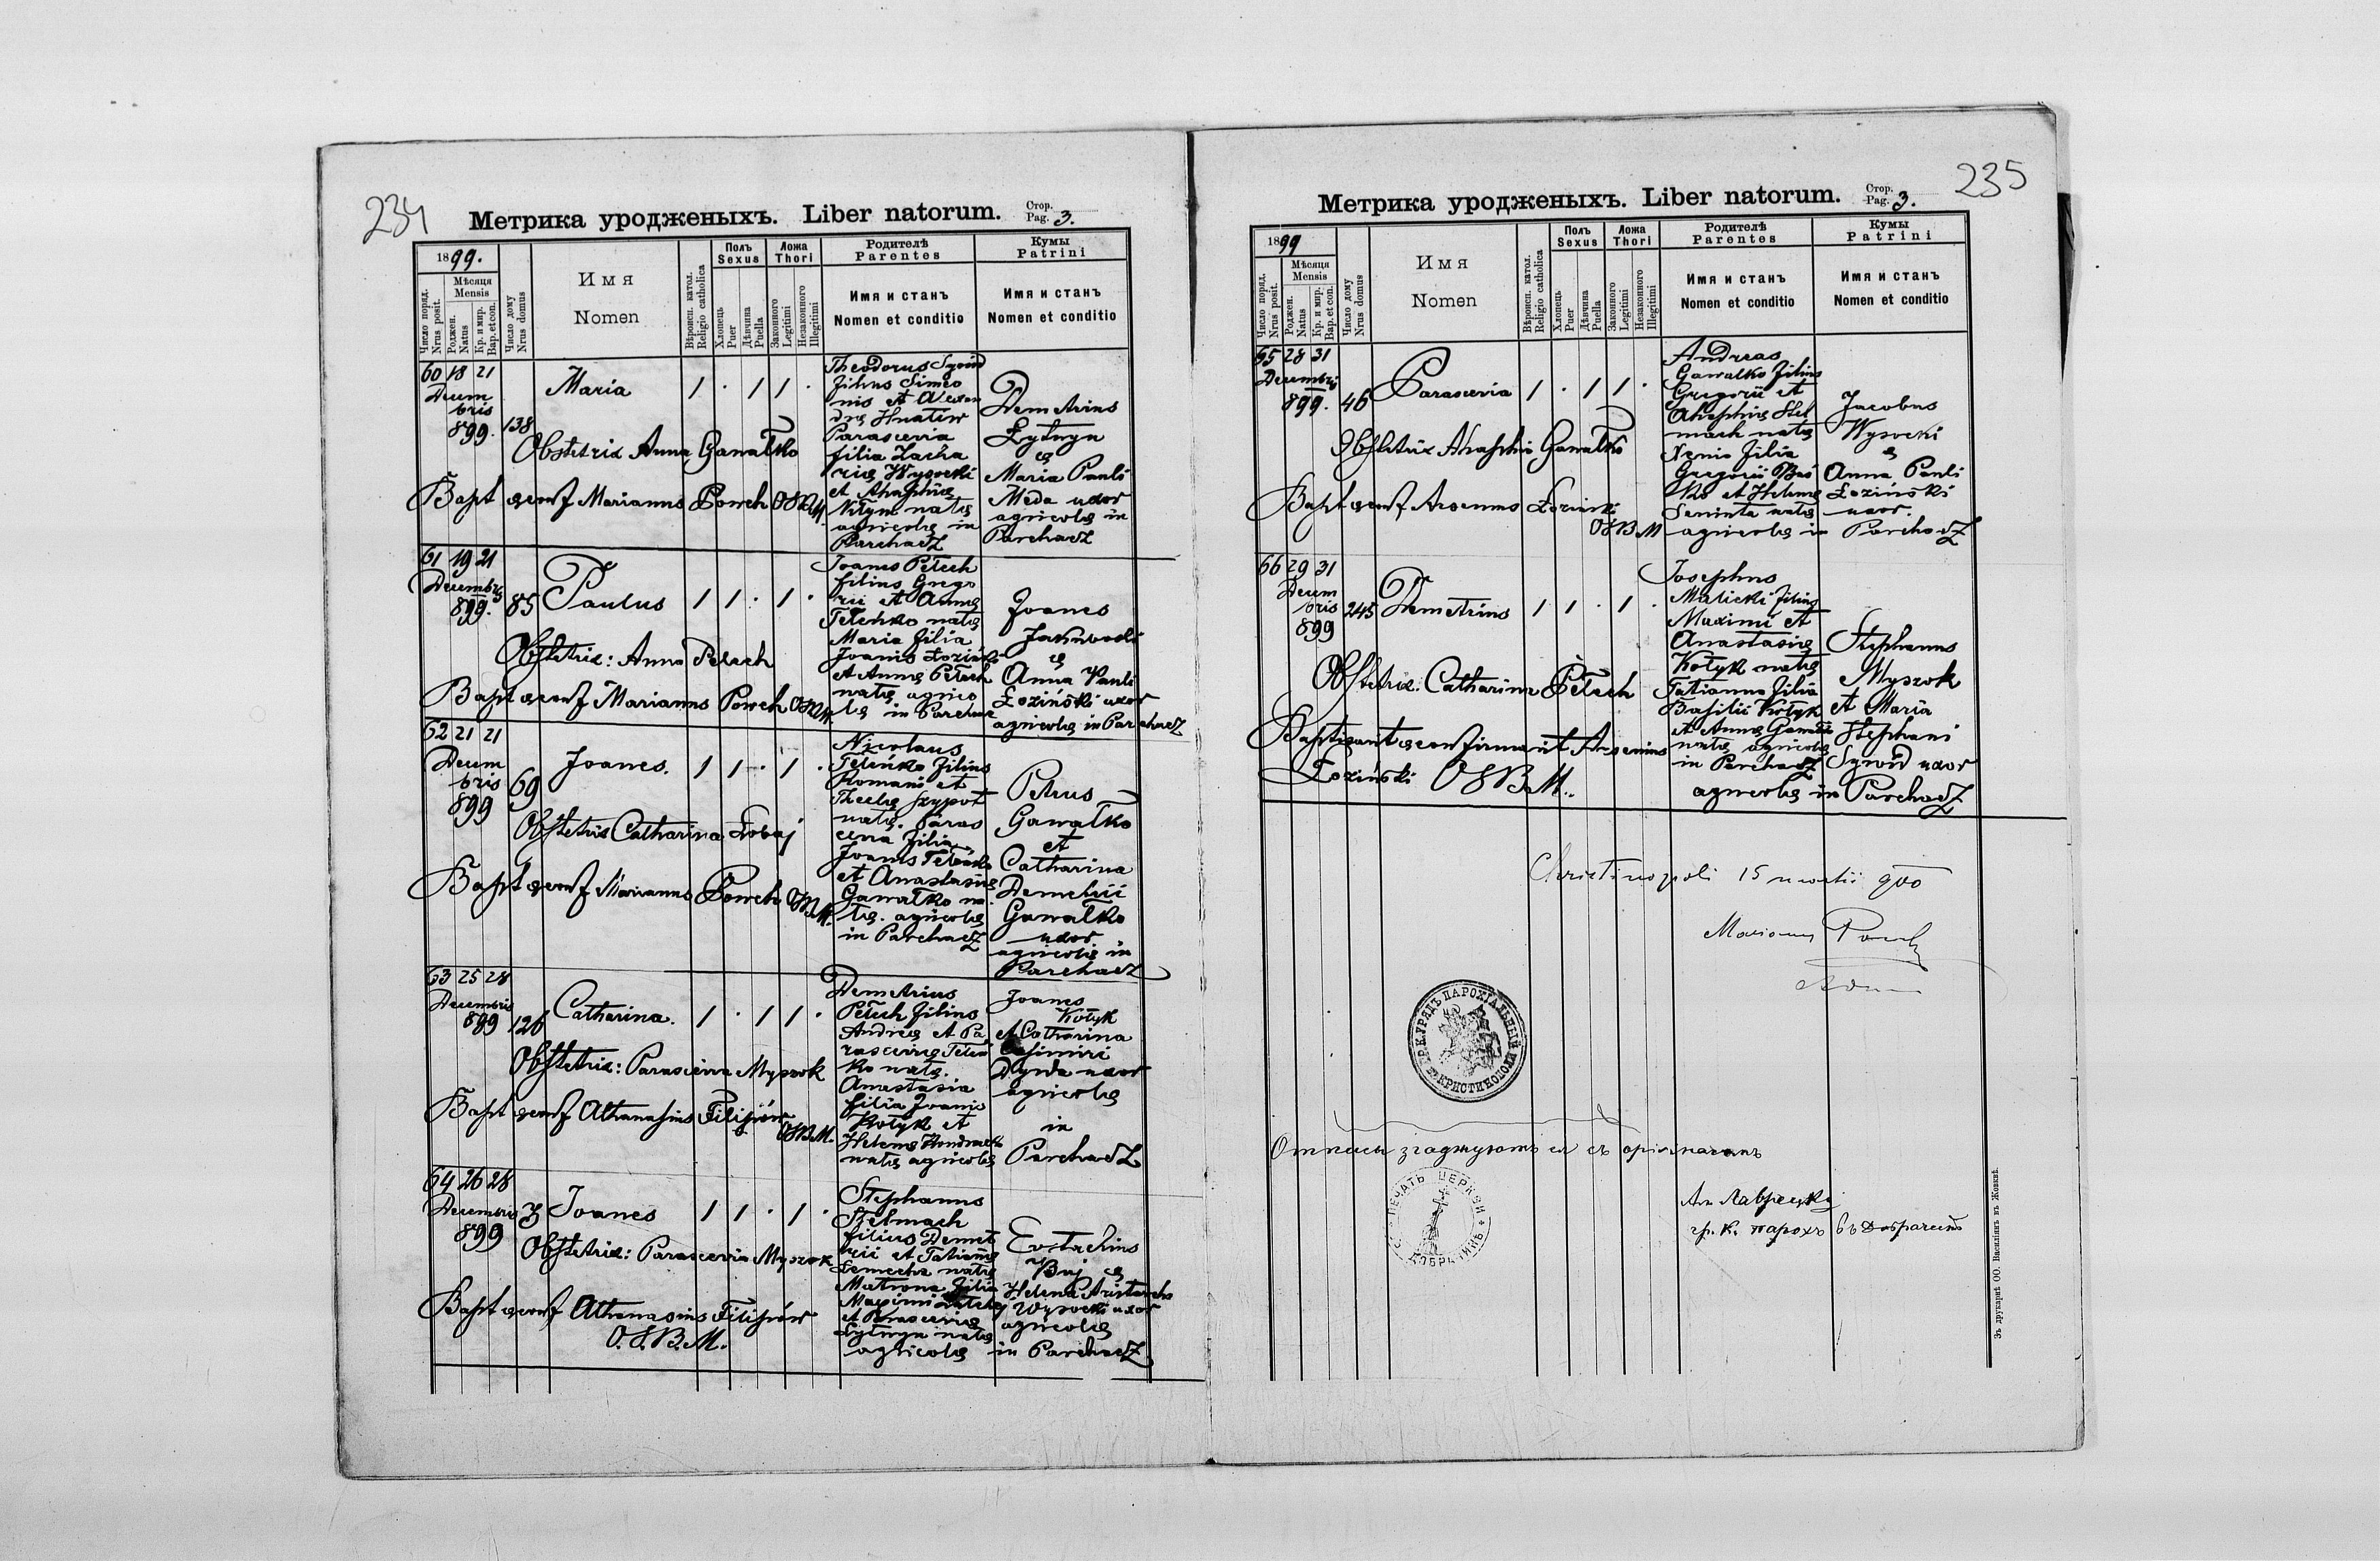 234
Метрика уродженыхъ. Liber natorum. Стор. Pag. 3.
1899.
Число поряд. Nrus posit.
Мѣсяця Mensis
Роджен. Natus
Кр. и мир. Bap. et con.
Число дому Nrus domus
Имя Nomen
Вѣроисп. катол. Religio catholica
Полъ Sexus
Хлопець Puer
Дѣвчина Puella
Ложа Thori
Законного Legitimi
Незаконного Illegitimi
Родителѣ Parentes
Имя и станъ
Nomen et conditio
Кумы Patrini
Имя и станъ
Nomen et conditio
60 18 21
Decem
bris
899. 138
Maria 1 . 1 1 .
Obstetrix Anna Gawałko
Bapt & conf Marianus Powch OSBM.
Theodorus
filius Simeo
nis et Alexan
drę Hnatiw
Parascevia
filia Zacha
rię Wysocki
et Ahaphię
natę
agricolę in
Parchacz
Demetrius
Łytwyn
&
Maria Pauli
Meda uxor
agricolę in
Parchacz
61 19 21
Decembris
899. 85
Paulus 1 1 . 1 .
Obstetrix: Anna Petech
Bapt & conf Marianus Powch OSBM.
Joanes Petech
filius Grego
rii et Annę
Teleńko natę
Maria filia
Joanis Łoziński
et Annę Petech
natę agrico
lę in Parchacz
Joanes
&
Anna Pauli
Łoziński uxor
agricolę in Parchacz
62 21 21
Decem
bris
899 69
Joanes. 1 1 . 1 .
Obstetrix Catharina Łobaj
Bapt & conf Marianus Powch OSBM.
Nicolaus
Teleńko filius
Romani et
Theclę Szypot
natę. Paras
cevia filia
Joanis Teleńko
et Anastasię
Gawałko na
tę. agricolę
in Parchacz
Petrus
Gawałko
et
Catharina
Demetrii
Gawałko
uxor
agricolę in
Parchacz
63 25 28
Decembris
899 126
Catharina. 1 . 1 1 .
Obstetrix: Parascevia Myszok
Bapt & conf Athanasius Filipów
OSBM.
Demetrius
Petech filius
Andreę et Pa
rascevię Teleń
ko natę.
Anastasia
filia Joanis
Kotyk et
Helenę
natę agricolę
Joanes
Kotyk
et Catharina
Casimiri
Dyda uxor
agricolę
in
Parchacz
64 26 28
Decembris
899 3
Joanes 1 1 . 1 .
Obstetrix: Parascevia Myszok
Bapt & conf Athanasius Filipów
O.S.B.M.
Stephanus
Szelmach
filius Demet
rii et Tatianę
natę
Matrona filia
Maximi
et Parascevię
Łytwyn natę
agricolę
Eustachius
Buj &
Helena Aristarchi
Wysocki uxor
agricolę
in Parchacz
235
Метрика уродженыхъ. Liber natorum. Стор. Pag. 3.
1899
Число поряд. Nrus posit.
Мѣсяця Mensis
Роджен. Natus
Кр. и мир. Bap. et con.
Число дому Nrus domus
Имя Nomen
Вѣроисп. катол. Religio catholica
Полъ Sexus
Хлопець Puer
Дѣвчина Puella
Ложа Thori
Законного Legitimi
Незаконного Illegitimi
Родителѣ Parentes
Имя и станъ
Nomen et conditio
Кумы Patrini
Имя и станъ
Nomen et conditio
65 28 31
Decembris
899. 46
Parascevia 1 . 1 1 .
Obstetrix Ahaphia Gawałko
Bapt & conf Arsenius Łoziński
OSBM
Andreas
Gawałko filius
Gregorii et
Ahaphię Stel
mach natę
Xenia filia
Gregorii
et Helenę
natę
agricolę in Parchacz
Jacobus
Wysocki
&
Anna Pauli
Łoziński
uxor.
66 29 31
Decem
bris
899 245
Demetrius 1 1 . 1 .
Obstetrix. Catharina Petech
Baptisavit & confirmavit Arsenius
Łoziński OSBM.
Josephus
Malicki filius
Maximi et
Anastasię
Kotyk natę
Tatianna filia
Basilii Kotyk
et Annę
natę agricolę
in Parchacz
Stephanus
Myszok
et Maria
Stephani
uxor
agricolę in Parchacz
Christinopoli 15 martii 900
Marianus Powch
ГР.К. УРЯДЪ ПАРОХІАЛЬНЫЙ ВЪ КРИСТИНОПОЛИ
Отписы згаджуютъ ся съ оригиналомъ
ПЕЧАТЬ ЦЕРКВИ
Лаврецкій
гр. к. парохъ въ
Зъ друкарнѣ ОО. Василіянъ въ Жовквѣ.